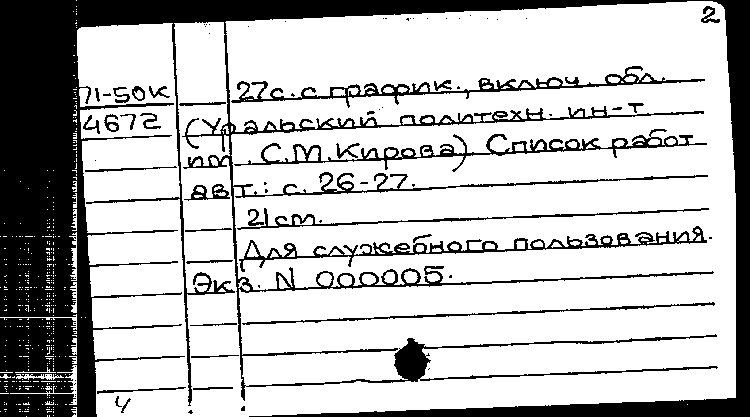 2
71-50к 27с. с график., включ. обл.
4672 (Уральский политехн. ин-т
им. С.М.Кирова) Список работ
авт.: с. 26-27.
21см.
Для служебного пользования.
Экз. N 000005.